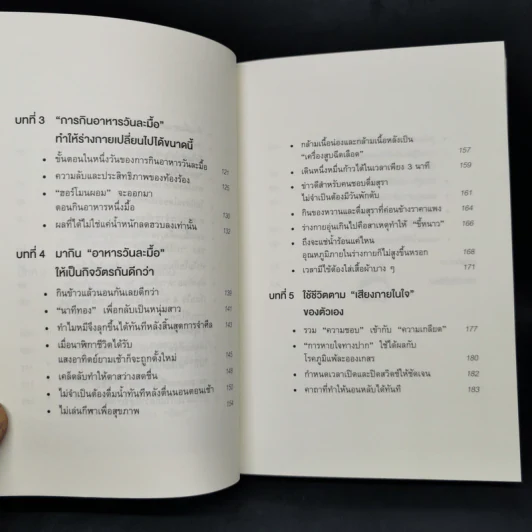 บทที่ 3 “การกินอาหารวันละมื้อ”
ทำให้ร่างกายเปลี่ยนไปได้ขนาดนี้
• ขั้นตอนในหนึ่งวันของการกินอาหารวันละมื้อ 121
• ความลับและประสิทธิภาพของท้องร้อง 125
• “ฮอร์โมนผอม” จะออกมา
ตอนกินอาหารหนึ่งมื้อ 130
• ผลที่ได้ไม่ใช่แค่น้ำหนักลดฮวบลงเท่านั้น 132
บทที่ 4 มากิน “อาหารวันละมื้อ”
ให้เป็นกิจวัตรกันดีกว่า
• กินข้าวแล้วนอนกันเลยดีกว่า 139
• “นาทีทอง” เพื่อกลับเป็นหนุ่มสาว 141
• ทำไมหมีจึงลุกขึ้นได้ทันทีหลังสิ้นสุดการจำศีล 143
• เมื่อนาฬิกาชีวิตได้รับ
แสงอาทิตย์ยามเช้าก็จะถูกตั้งใหม่ 145
• เคล็ดลับทำให้ตาสว่างสดชื่น 149
• ไม่จำเป็นต้องดื่มน้ำทันทีหลังตื่นนอนตอนเช้า 150
• ไม่เล่นกีฬาเพื่อสุขภาพ 154
• กล้ามเนื้อน่องและกล้ามเนื้อหลังเป็น
“เครื่องสูบฉีดเลือด” 157
• เดินหนึ่งหมื่นก้าวได้ในเวลาเพียง 3 นาที 159
• ข่าวดีสำหรับคนชอบดื่มสุรา
ไม่จำเป็นต้องมีวันพักตับ 161
• กินของหวานและดื่มสุราที่ค่อนข้างราคาแพง 164
• ร่างกายอุ่นเกินไปคือสาเหตุทำให้ “ขี้หนาว” 166
• ถึงจะแช่น้ำร้อนแค่ไหน
อุณหภูมิภายในร่างกายก็ไม่สูงขึ้นหรอก 168
• เวลามีไข้ต้องใส่เสื้อผ้าบาง ๆ 171
บทที่ 5 ใช้ชีวิตตาม “เสียงภายในใจ”
ของตัวเอง
• รวม “ความชอบ” เข้ากับ “ความเกลียด” 177
• “การหายใจทางปาก” ใช้ได้ผลกับ
โรคภูมิแพ้ละอองเกสร 180
• กำหนดเวลาเปิดและปิดสวิตช์ให้ชัดเจน 182
• คาถาที่ทำให้นอนหลับได้ทันที 183